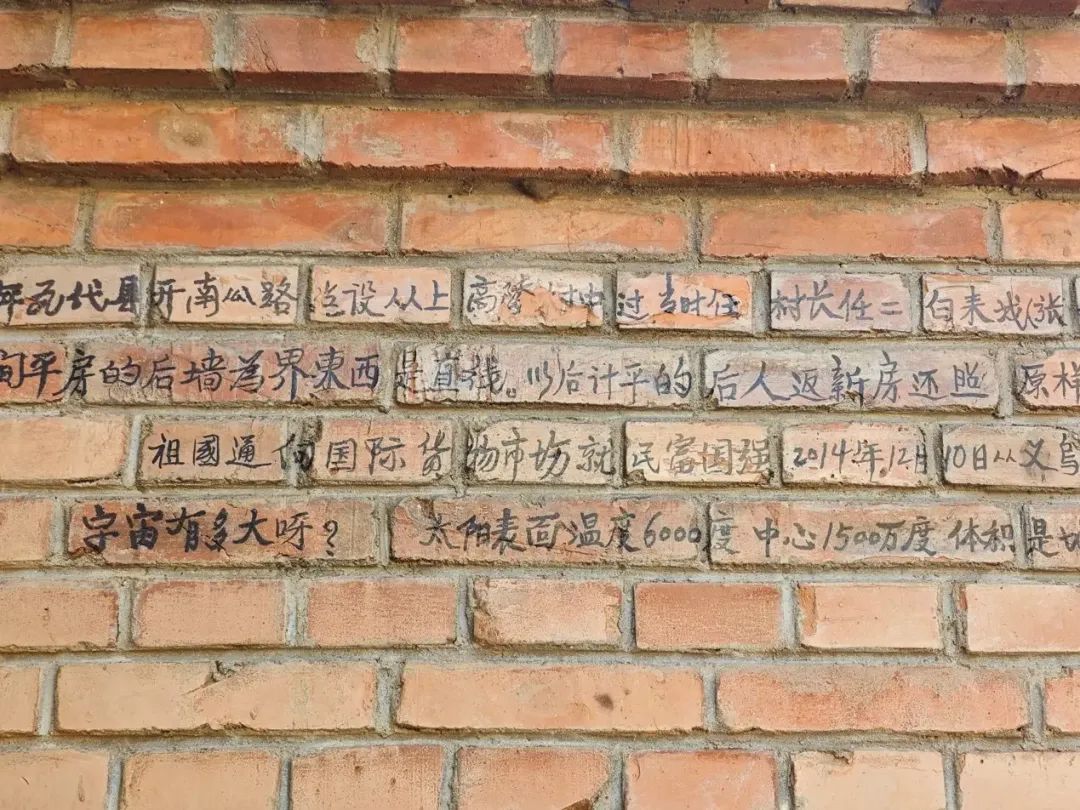 年瓦代县开南公路 当设从上高 村中过 当时任村长任二白表戏(张
间平房的后墙為界東西是直线。以后计平的后人返新房还照原样
祖國通向国际货物市场就民富国强2014年12月10日从义鸟
宇宙有多大呀? 太阳表面温度6000度中心1500万度体积是